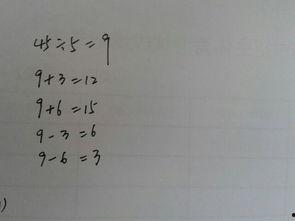 45÷5=9
9+3=12
9+6=15
9-3=6
9-6=3
)